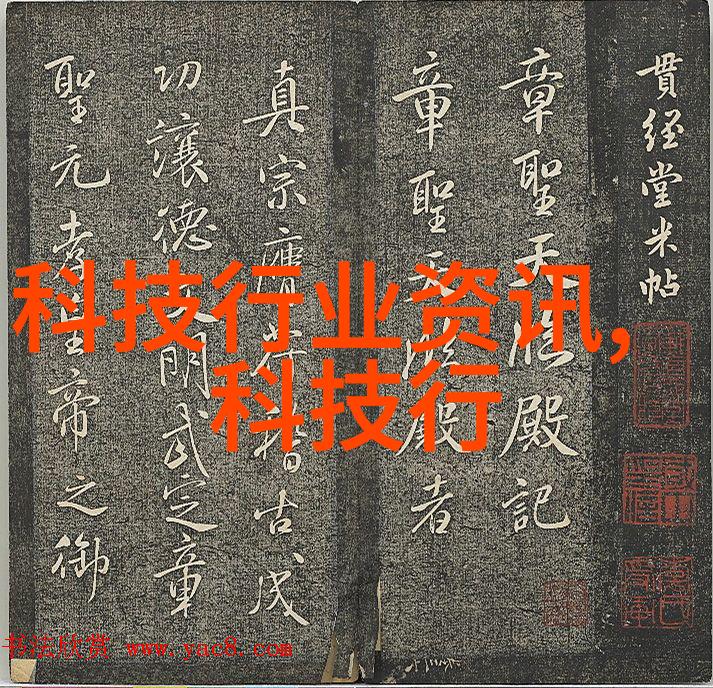 貫經堂米帖
章聖天臨殿記
章聖天臨殿者
真宗膺符稽古成
功讓德文明武定章
聖元孝皇帝之御
科技行业资讯,
科技行
书法欣赏 www.yac8.com